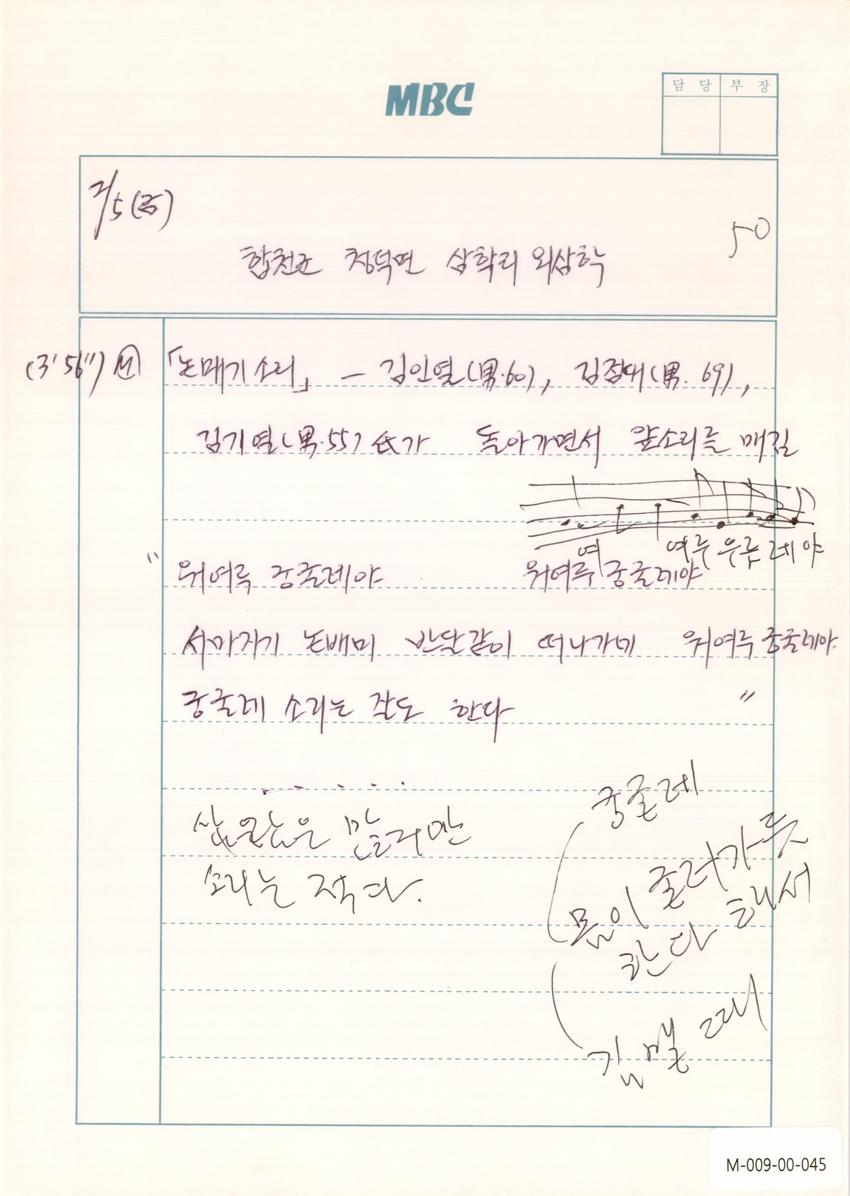 MBC
담 당 부 장
2/5 (금)
50
합천군 청덕면 삼학리 외삼학
(3'56")
「논매기 소리」 — 김인열(男.60), 김점대(男. 69),
김기열(男.55) 氏가 돌아가면서 앞소리를 매김
여 여루 우루 레야
" 위여루 궁굴레야 위여루 궁굴레야
서마지기 논배미 반달같이 떠나가네 위여루 궁굴레야
궁굴레 소리는 잘도 한다 "
· · · · ·
사람은 많더만
소리는 적다.
궁굴레
몸이 굴러가듯
한다 해서
김맬 때
M-009-00-045